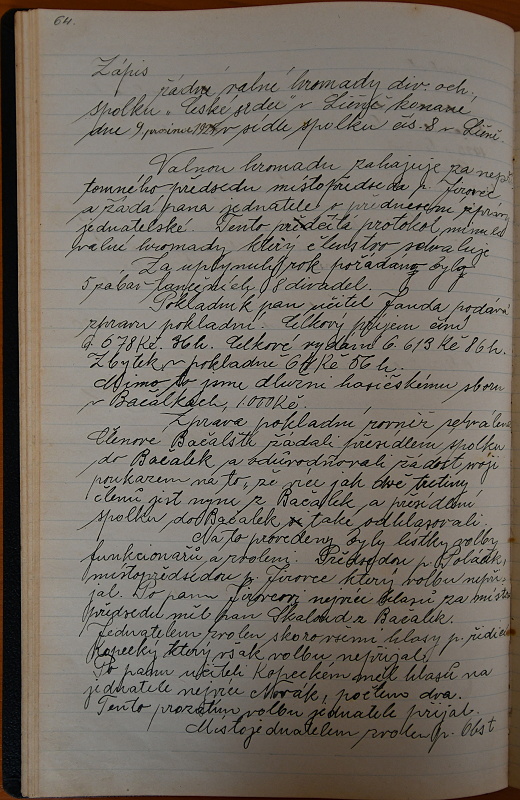 64.
Zápis
řádné valné hromady div. och.
spolku "České srdce" v Ličně konané
dne 9 prosince v sídle spolku čís. 8 v Ličně
Valnou hromadu zahajuje za nepří-
tomného předsedu místopředseda p. Jirovec
a žádá pana jednatele o přednesení zprávy
jednatelské. Tento předčítá protokol minulé
valné hromady, který členstvo schvaluje
Za uplynulý rok pořádány byly
5 zábav tanečních, 8 divadel.
Pokladník pan učitel Janda podává
zprávu pokladní. Celkový příjem činí
6.678 Kč. 36 h. Celkové vydání 6.613 Kč 86 h.
Zbytek v pokladně Kč
Mimo to jsme dlužni hasičskému sboru
v Bačálkách, 1000 Kč.
Zpráva pokladní rovněž schválena
Členové Bačalští žádali přesídlení spolku
do Bačálek a odůvodňovali žádost svoji
poukazem na to, že více jak dvě třetiny
členů jest nyní z Bačálek a přesídlení
spolku do Bačálek si také odhlasovali.
Na to provedeny byly lístky volby
funkcionářů a zvoleni. Předsedou p. Polák,
místopředsedou p. Jirovec který volbu nepři-
jal. Po panu Jirovcovi nejvíce hlasů za místo
předsedu měl pan Skaloud z Bačálek.
Jednatelem zvolen skoro všemi hlasy p. řídící
Kopecký který však volbu nepřijal.
Po panu učiteli Kopeckém měl hlasů na
jednatele nejvíce Novák, počtem dva.
Tento prozatím volbu jednatele přijal.
Místojednatelem zvolen p. Obst